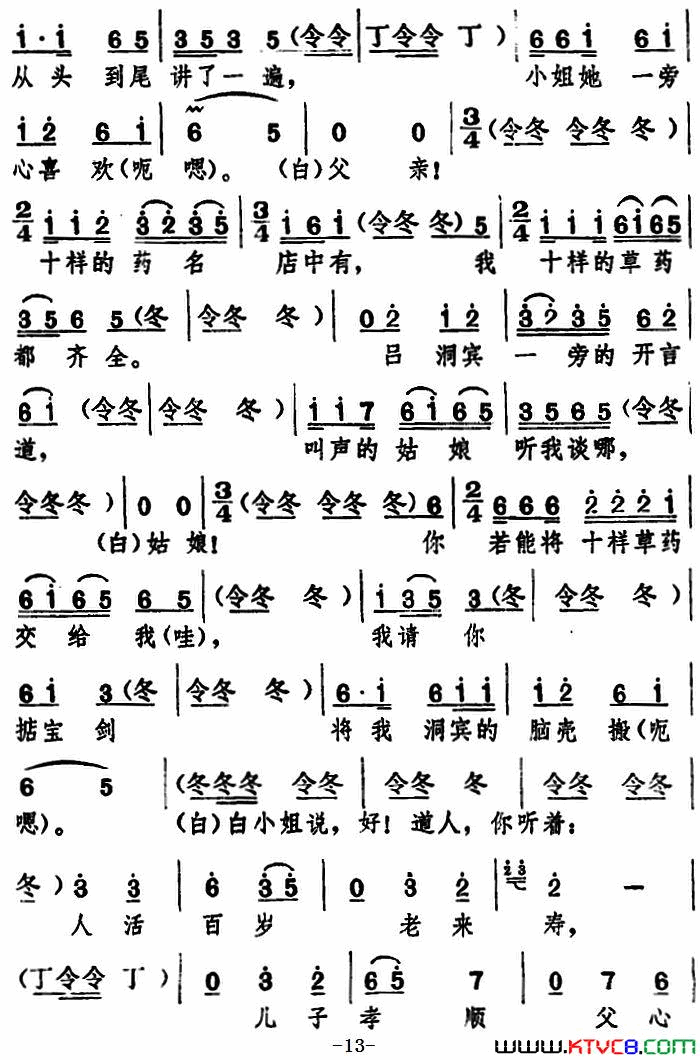 i·i 65 | 353 5(令令 | 丁令令 丁) | 66i 6i |
从头 到尾 讲了一遍， 小姐她 一旁
i2 6i | 6 5 | 0 0 | 3/4 (令冬 令冬 冬) |
心喜 欢(呃 嗯)。 (白)父 亲！
2/4 ii2 3235 | 3/4 i6i (令冬冬) 5 | 2/4 iii 6i65 |
十样的 药名 店中有， 我 十样的草药
356 5(冬 | 令冬 冬) | 02 44 | 3235 62 |
都齐全。 吕 洞宾 一旁的 开言
6i (令冬 | 令冬 冬) | ii7 6i65 | 3565 (令冬 |
道， 叫声的 姑娘 听我谈哪，
令冬冬) | 0 0 | 3/4 (令冬 令冬 冬) 6 | 2/4 666 222i |
(白)姑 娘！ 你 若能将 十样草药
6i65 65 | (令冬 冬) | i35 3(冬 | 令冬 冬) |
交给 我(哇)， 我请 你
6i 3(冬 | 令冬 冬) | 6·i 6ii | i2 6i |
掂宝 剑 将我 洞宾的 脑壳 搬(呃
6 5 | (冬冬冬 令冬 | 令冬 冬 | 令冬 令冬 |
嗯)。 (白)白小姐说，好！道人，你听着：
冬) 3 3 | 6 35 | 0 3 2 | 23 2 — |
人 活 百 岁 老 来 寿，
(丁令令 丁) | 0 3 2 | 65 7 | 0 7 6 |
儿 子 孝 顺 父 心
-13-
www.KTVC8.com